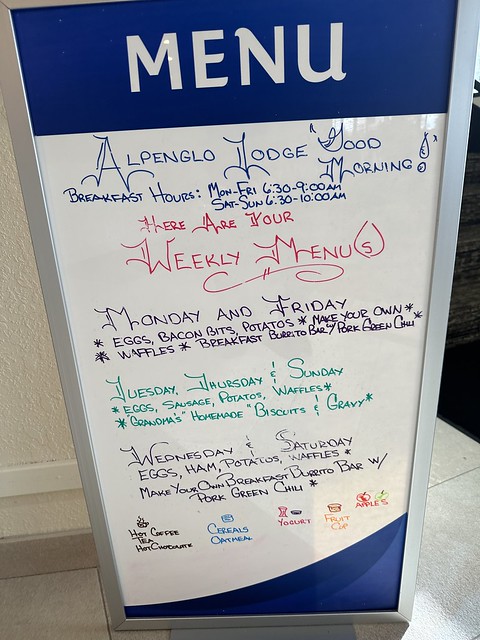 MENU
ALPENGLO LODGE "GOOD
MORNING!"
BREAKFAST HOURS: MON-FRI 6:30-9:00AM
SAT-SUN 6:30-10:00AM
HERE ARE YOUR
WEEKLY MENU(S)
MONDAY AND FRIDAY
* EGGS, BACON BITS, POTATOS * MAKE YOUR OWN *
* WAFFLES * BREAKFAST BURRITO BAR W/ PORK GREEN CHILI *
TUESDAY, THURSDAY & SUNDAY
* EGGS, SAUSAGE, POTATOS, WAFFLES *
* "GRANDMA'S" HOMEMADE "BISCUITS & GRAVY *
WEDNESDAY & SATURDAY
EGGS, HAM, POTATOS, WAFFLES *
MAKE YOUR OWN BREAKFAST BURRITO BAR W/
PORK GREEN CHILI *
HOT COFFEE
TEA
HOT CHOCOLATE
CEREALS
OATMEAL
YOGURT
FRUIT
CUP
APPLES